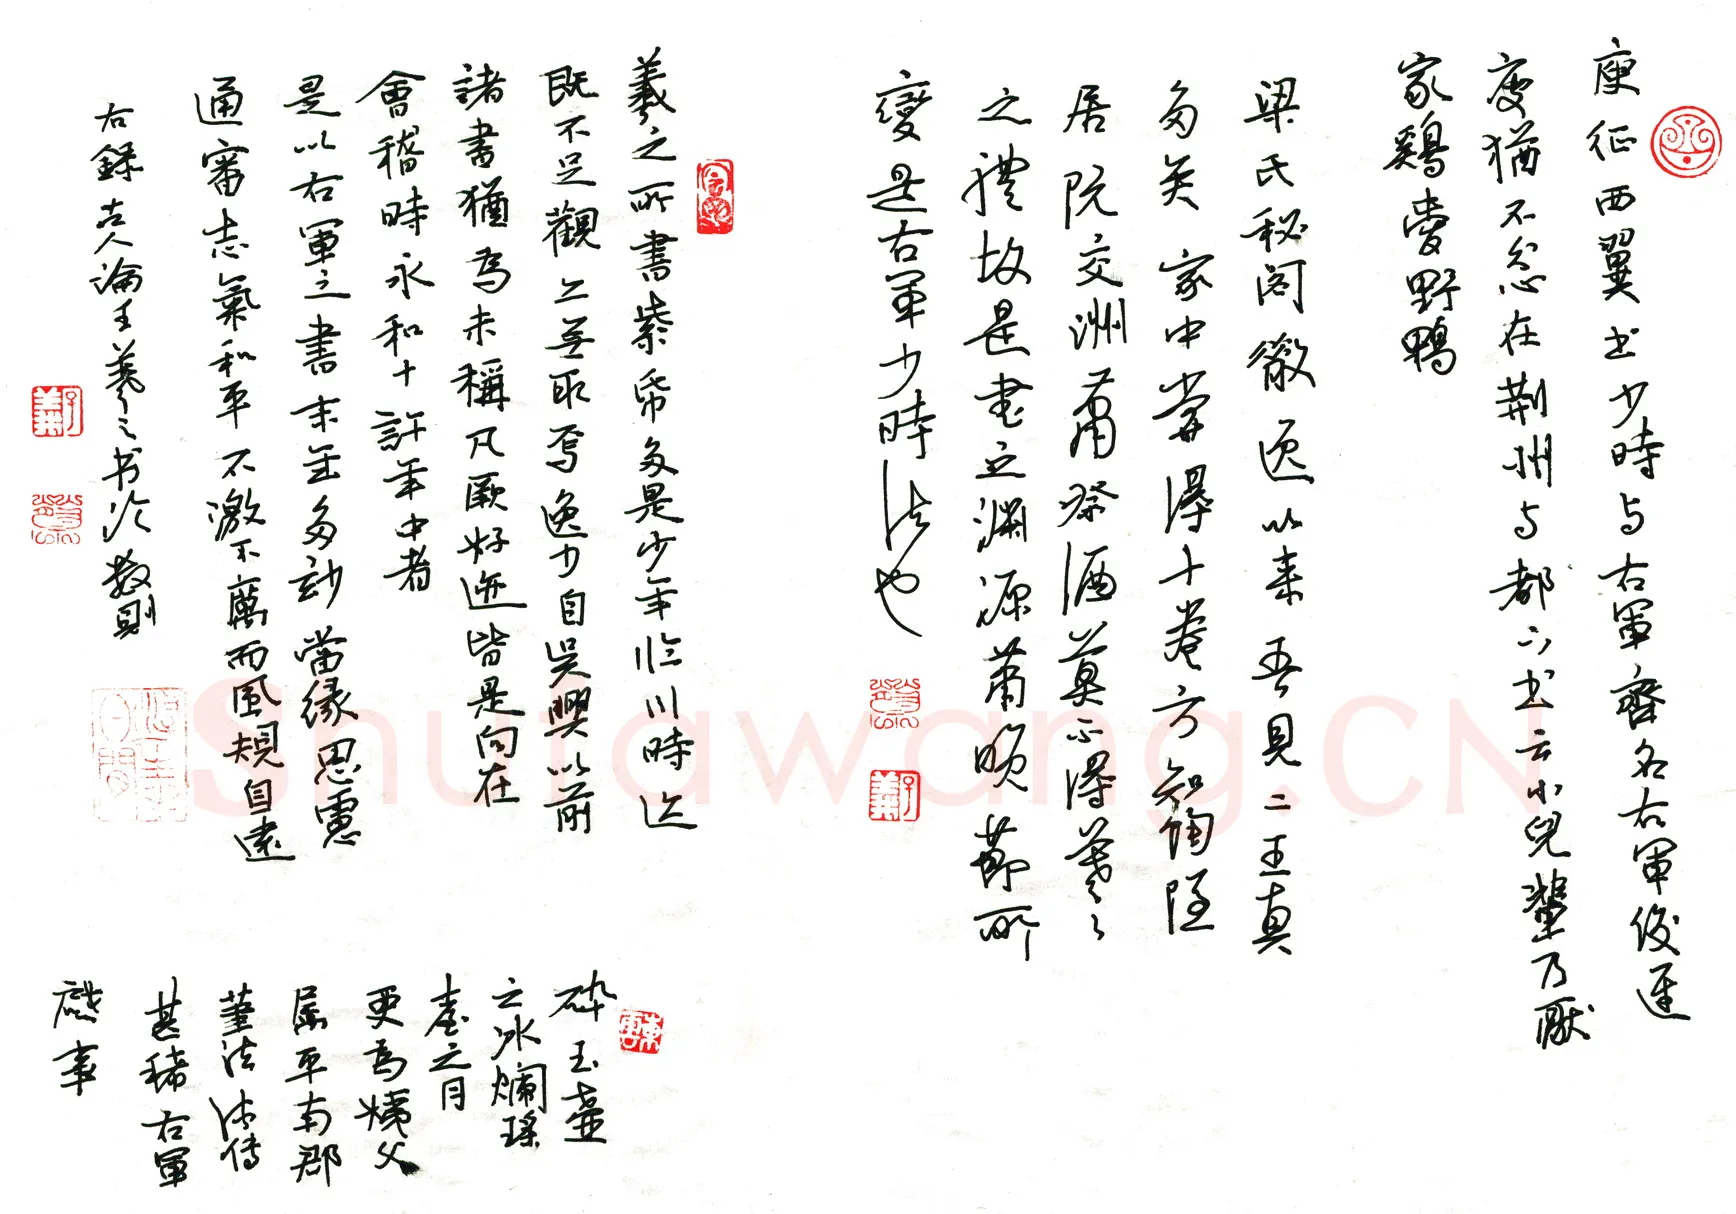 庾征西翼书少時与右軍齊名右軍後進
庾猶不忿在荆州与都下书云小兒輩乃厭
家鷄爱野鴨
梁氏秘阁散逸以来吾見二王真
多矣家中嘗得十卷方知陶隐
居阮交洲萧祭酒莫不得羲之
之禮故是書之渊源萧晚節所
變是右軍少時法也
羲之所書紫帋多是少年临川時迹
既不足觀亡無取焉逸少自吴興以前
諸書猶為未稱凡厥好迹皆是向在
會稽時永和十許年中者
是以右軍之書末年多妙當缘思慮
通審志氣和平不激不厲而風規自遠
右録古人論王羲之书法数則
碎玉壶
之冰爛瑶
臺之月
更為姨父
属平南郡
董法法傳
甚稀右軍
應事
Shufawang.CN